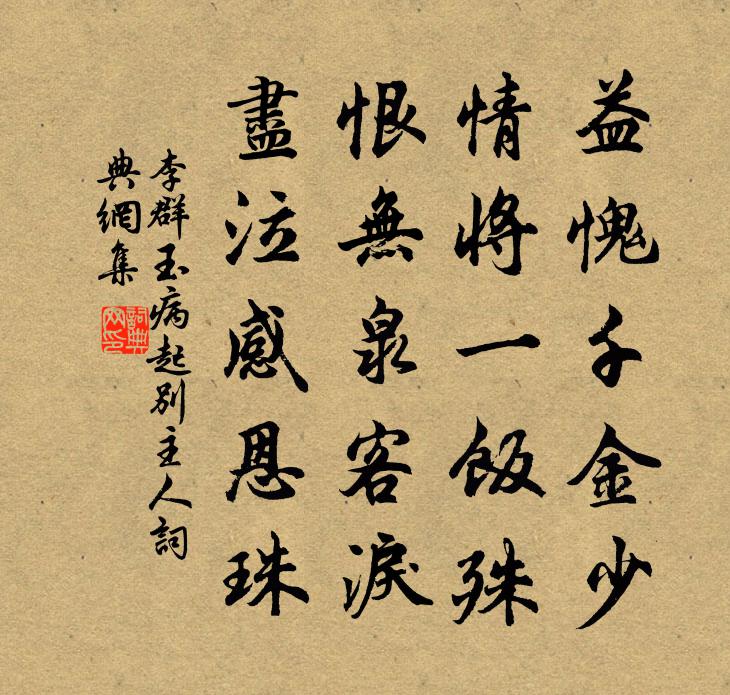 益愧千金少
情將一飯殊
恨無泉客淚
盡泣感恩珠
李群玉病起別主人詞
典網集
詞典
网印